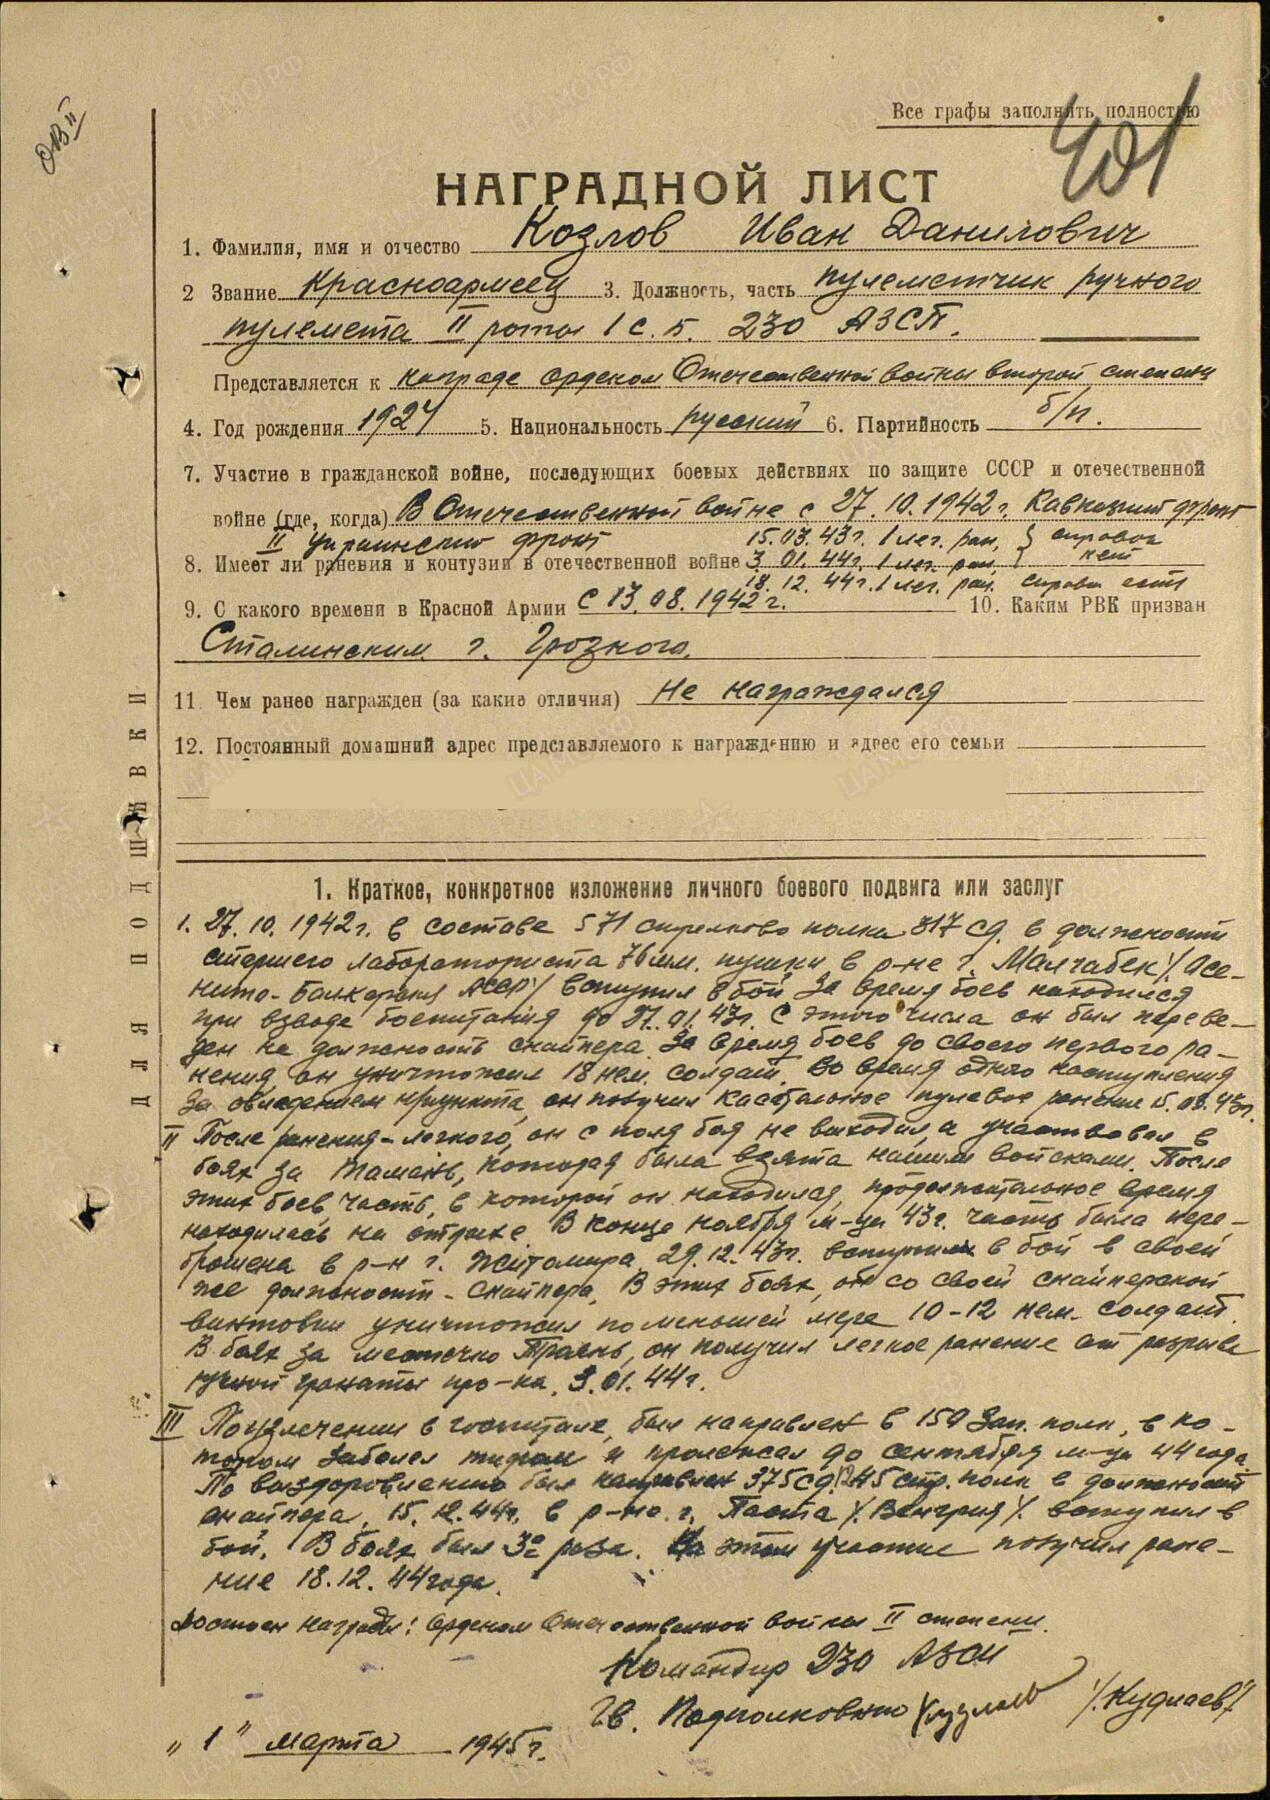 ОВ II
Все графы заполнять полностью
401
НАГРАДНОЙ ЛИСТ
1. Фамилия, имя и отчество Козлов Иван Данилович
2 Звание Красноармеец 3. Должность, часть пулеметчик ручного
пулемета II роты 1 с. б. 230 АЗСП.
Представляется к награде орденом Отечественной войны второй степени
4. Год рождения 1924 5. Национальность русский 6. Партийность б/п.
7. Участие в гражданской войне, последующих боевых действиях по защите СССР и отечественной
войне (где, когда) В Отечественной войне с 27.10.1942г. Кавказский фронт
II Украинский фронт 15.03.43г. 1 лег. ран, } справок
8. Имеет ли ранения и контузии в отечественной войне 3.01.44г. 1 лег. ран. нет
18.12.44г. 1 лег. ран. справк есть
9. С какого времени в Красной Армии с 13.08.1942г. 10. Каким РВК призван
Сталинским г. Грозного.
11. Чем ранее награжден (за какие отличия) Не награждался
12. Постоянный домашний адрес представляемого к награждению и адрес его семьи
ДЛЯ ПОДШИВКИ
1. Краткое, конкретное изложение личного боевого подвига или заслуг
1. 27.10.1942г. в составе 571 стрелково полка 317 сд. в должности
76 мм. пушки в р-не г. Малгабек /.Осе-
тино-Балкарская АССР/ вступил в бой. За время боев находился
при взводе боепитания до 27.01.43г. С этого числа он был переве-
ден на должность снайпера. За время боев до своего первого ра-
нения, он уничтожил 18 нем. солдат. Во время одного наступления
За овладением н/пункта, он получил касательное пулевое ранение 15.03.43г.
II После ранения-легкого, он с поля боя не выходил, а участвовал в
боях за Тамань, которая была взята нашими войсками. После
этих боев, часть, в которой он находился, продолжительное время
находилась на отдыхе. В конце ноября м-ца 43г. часть была пере-
брошена в р-н г. Житомира. 29.12.43г. вступил в бой в своей
же должности - снайпера. В этих боях, он со своей снайперской
винтовки уничтожил по меньшей мере 10-12 нем. солдат.
В боях за местечко он получил легкое ранение от разрыва
ручной гранаты про-ка. 3.01.44г.
III По излечении в госпитале, был направлен в 150 Зап. полк, в ко-
тором заболел тифом и пролежал до сентября м-ца 44 года.
По выздоровлению был направлен 375 сд. 1245 стр. полк в должности
снайпера. 15.12.44г. в р-не. г. Паста /.Венгрия/. вступил в
бой. В боях был 3 раза. На этом участке получил ране-
ние 18.12.44 года.
Достоен награды: Орденом Отечественной войны II степени.
Командир 230 АЗСП
Гв. Подполковник /.Кудлаев/
„ 1 " марта 1945 г.